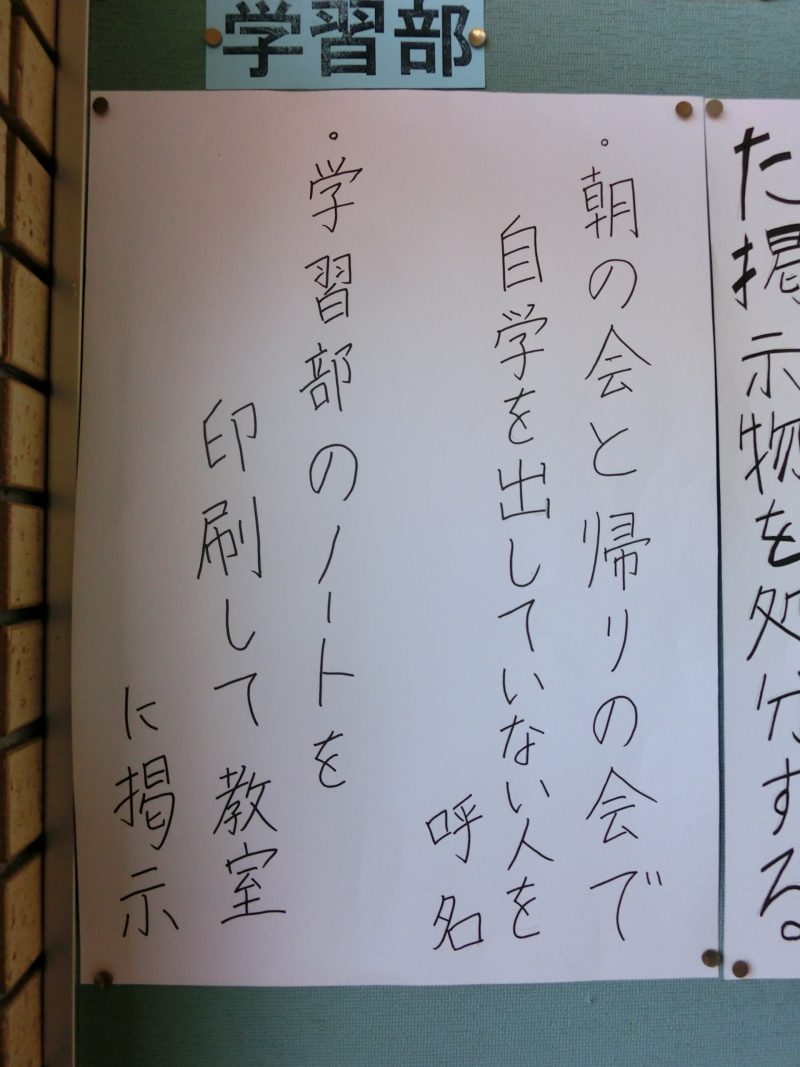 学習部
・朝の会と帰りの会で
自学を出していない人を
呼名
・学習部のノートを
印刷して教室
に掲示
た掲示物を処分する。